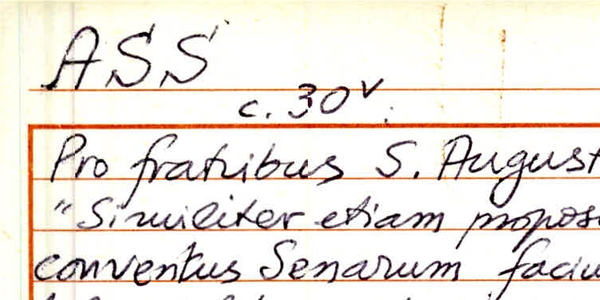 ASS
c. 30v.
Pro fratribus S. August
"Similiter etiam propos
conventus Senarum faciu